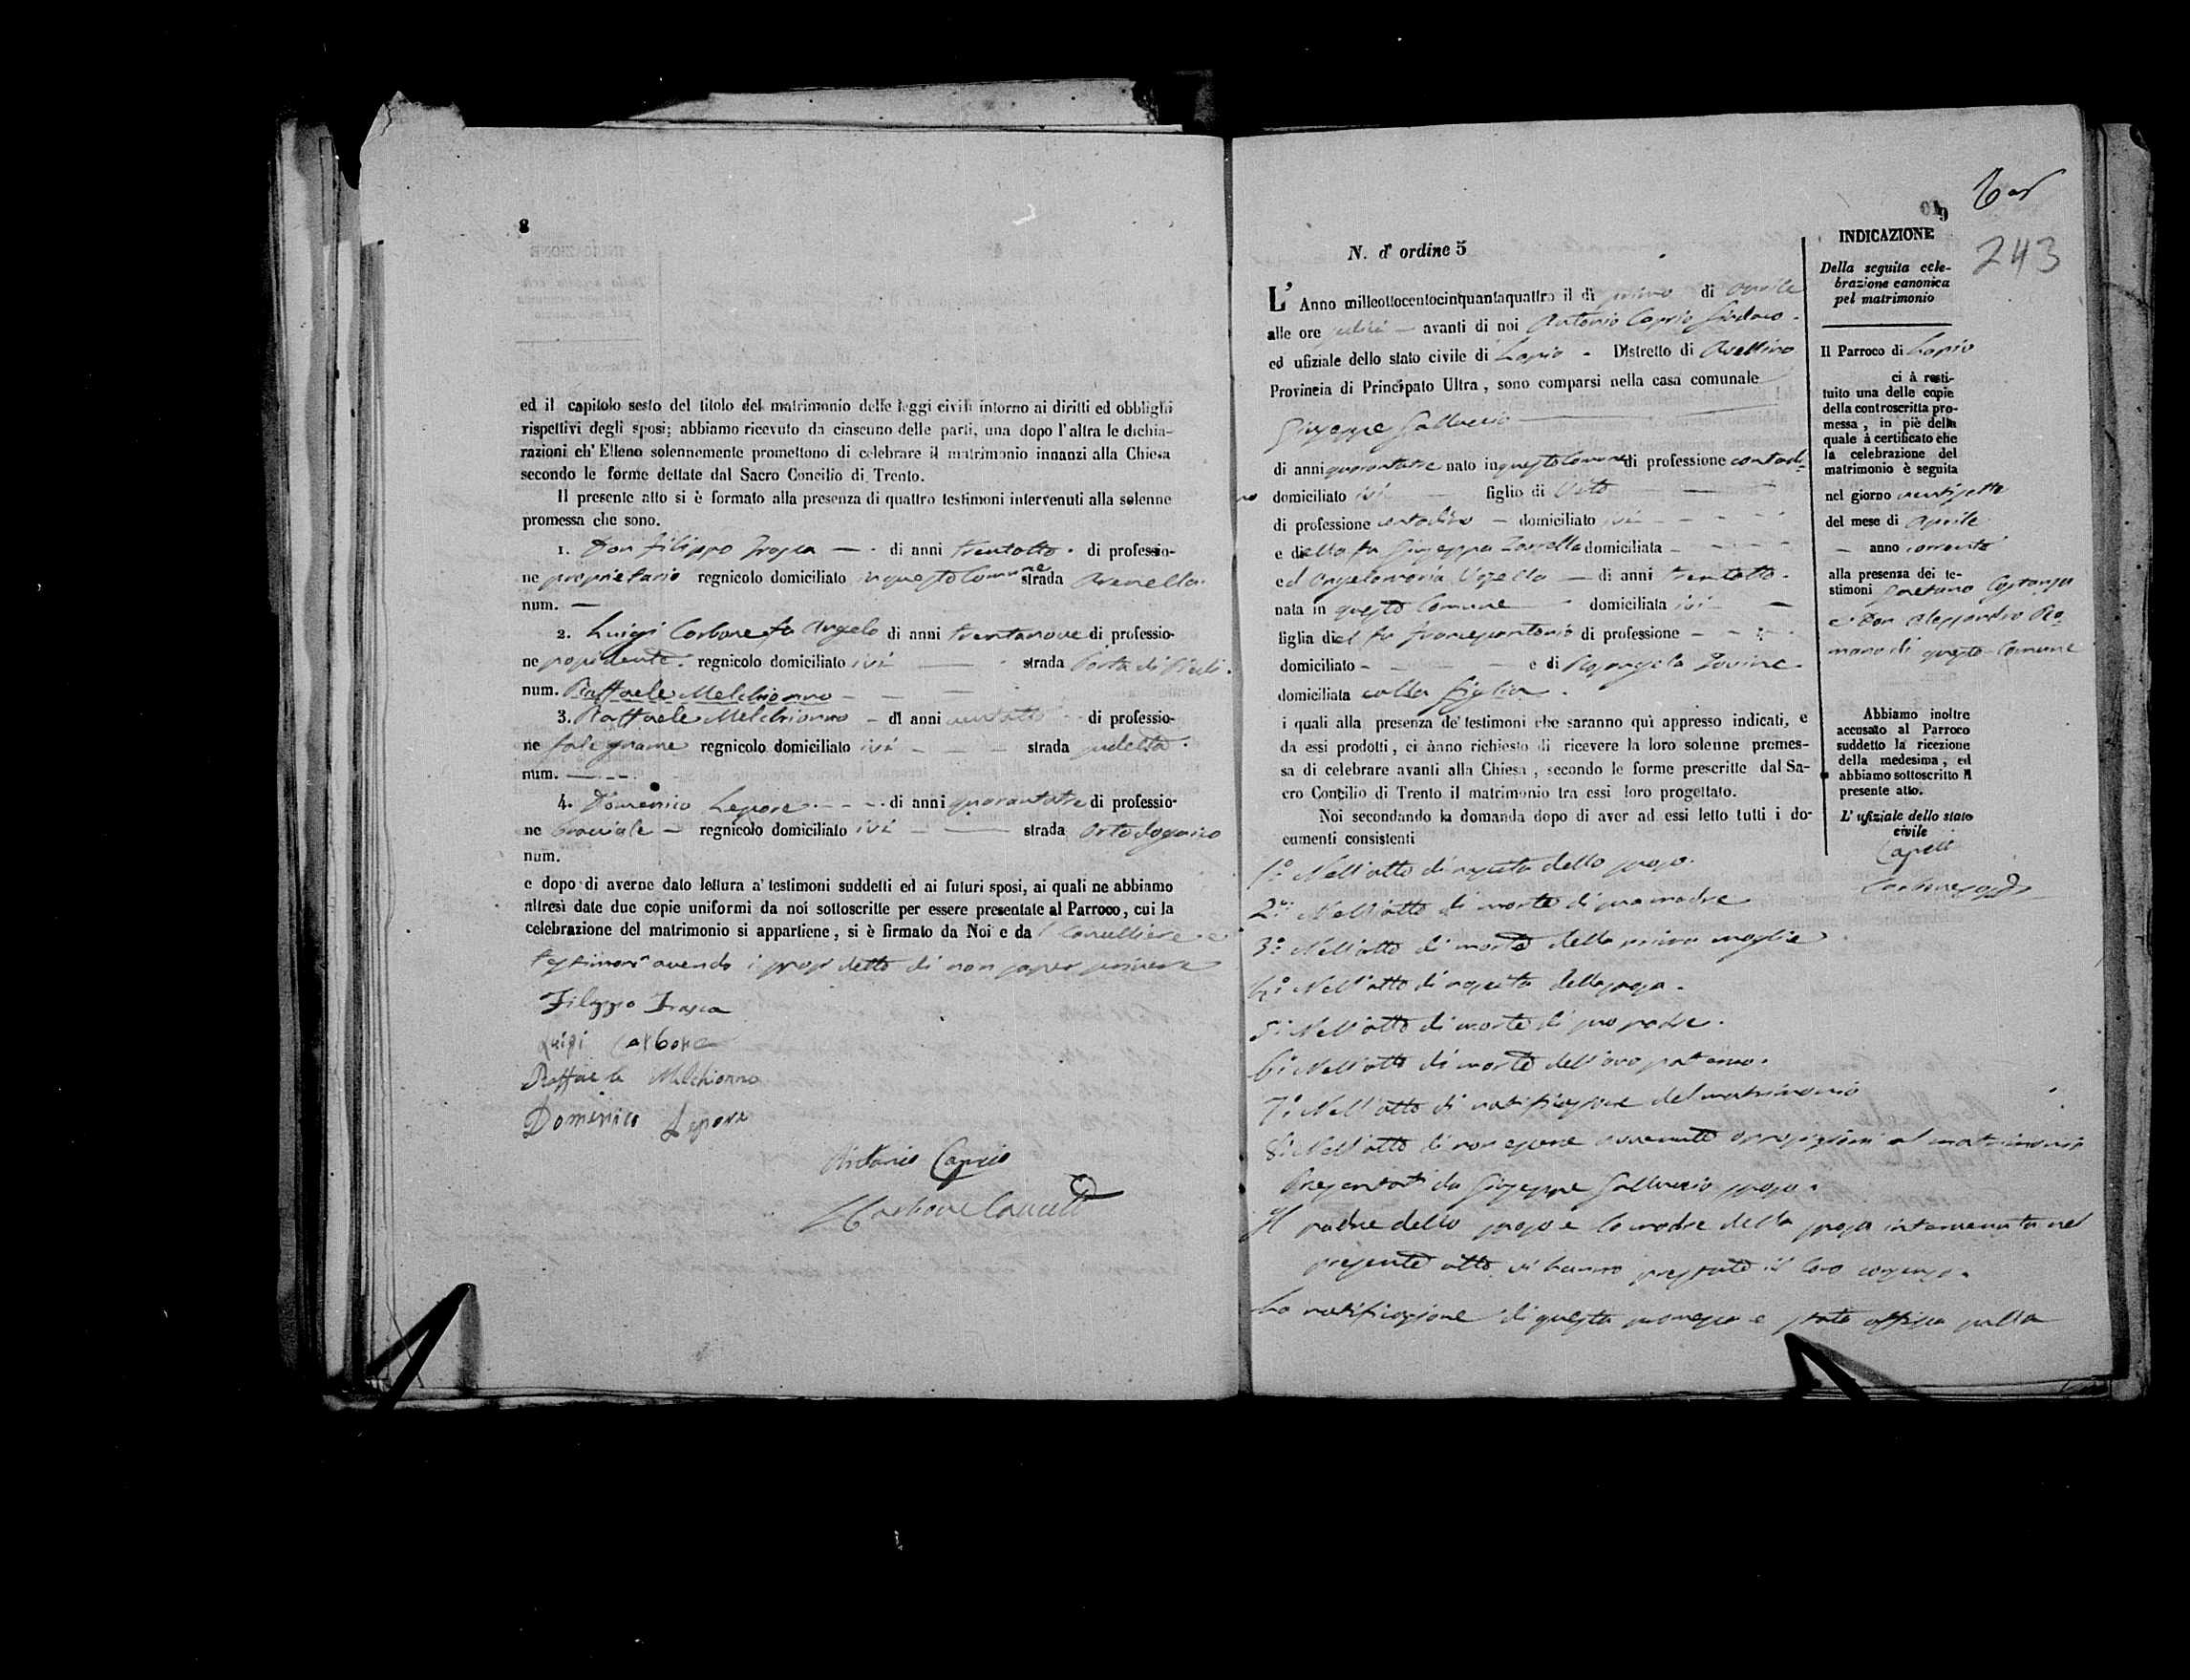 8
ed il capitolo sesto del titolo del matrimonio delle leggi civili intorno ai diritti ed obblighi
rispettivi degli sposi; abbiamo ricevuto da ciascuno delle parti, una dopo l'altra le dichia-
razioni ch'Elleno solennemente promettono di celebrare il matrimonio innanzi alla Chiesa
secondo le forme dettate dal Sacro Concilio di Trento.
Il presente atto si è formato alla presenza di quattro testimoni intervenuti alla solenne
promessa che sono.
1. Don Filippo Trosca di anni trentotto di professio-
ne proprietario regnicolo domiciliato in questo Comune strada Arenella
num. —
2. Luigi Carbone fu Angelo di anni trentanove di professio-
ne possidente regnicolo domiciliato ivi strada Porta di
num. Raffaele Melchionno
3. Raffaele Melchionno di anni di professio-
ne falegname regnicolo domiciliato ivi strada
num. —
4. Domenico Lepore di anni quarantatre di professio-
ne bracciale regnicolo domiciliato ivi strada
num.
e dopo di averne dato lettura a' testimoni suddetti ed ai futuri sposi, ai quali ne abbiamo
altresì date due copie uniformi da noi sottoscritte per essere presentate al Parroco, cui la
celebrazione del matrimonio si appartiene, si è firmato da Noi e da l Cancelliere e
testimoni avendo i sposi detto di non saper scrivere
Filippo Trosca
Luigi Carbone
Raffaele Melchionno
Domenico Lepore
Antonio Caprio
Carbone Cancell
9
243
N. d'ordine 5
L'Anno milleottocentocinquantaquattro il dì primo di Aprile
alle ore avanti di noi Antonio Caprio Sindaco
ed ufiziale dello stato civile di Lapio Distretto di Avellino
Provincia di Principato Ultra, sono comparsi nella casa comunale
Giuseppe Galluccio
di anni quarantatre nato in questo Comune di professione contadi-
no domiciliato ivi figlio di Vito
di professione contadino domiciliato ivi
e di ella fu Giuseppa domiciliata —
ed Angelamaria di anni trentotto
nata in questo Comune domiciliata ivi
figlia di el fu Francesantonio di professione —
domiciliato — e di Rosangela Iovine
domiciliata colla figlia.
i quali alla presenza de' testimoni che saranno quì appresso indicati, e
da essi prodotti, ci ànno richiesto di ricevere la loro solenne promes-
sa di celebrare avanti alla Chiesa, secondo le forme prescritte dal Sa-
cro Concilio di Trento il matrimonio tra essi loro progettato.
Noi secondando la domanda dopo di aver ad essi letto tutti i do-
cumenti consistenti
1.° Nell'atto di nascita dello sposo.
2.° Nell'atto di morte di sua madre
3.° Nell'atto di morte della prima moglie
4.° Nell'atto di nascita della sposa.
5.° Nell'atto di morte di suo padre.
6.° Nell'atto di morte dell'avo paterno.
7.° Nell'atto di notificazione del matrimonio
8.° Nell'atto di non essere avvenute opposizioni al matrimonio
Presentati da Giuseppe Galluccio sposo.
Il padre dello sposo e la madre della sposa intervenuta nel
presente atto vi hanno prestato il loro consenso.
La notificazione di questa promessa è stata affissa sulla
INDICAZIONE
Della seguita cele-
brazione canonica
pel matrimonio
Il Parroco di Lapio
ci à resti-
tuito una delle copie
della controscritta pro-
messa, in piè della
quale à certificato che
la celebrazione del
matrimonio è seguita
nel giorno ventisette
del mese di Aprile
— anno corrente
alla presenza dei te-
stimoni Gaetano Costanza
e Don Alessandro Ro-
mano di questo Comune
Abbiamo inoltre
accusato al Parroco
suddetto la ricezione
della medesima, ed
abbiamo sottoscritto il
presente atto.
L'ufiziale dello stato
civile
Caprio
Carbone